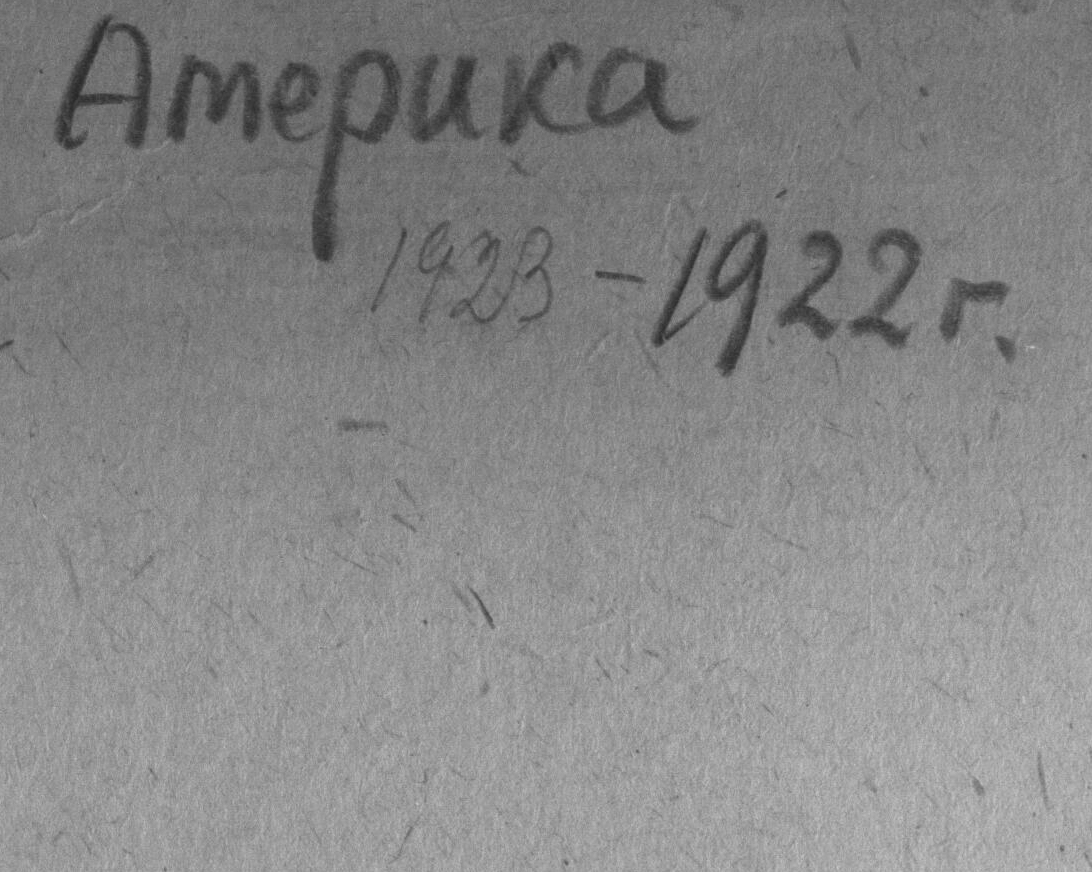 Америка
1923 - 1922 г.